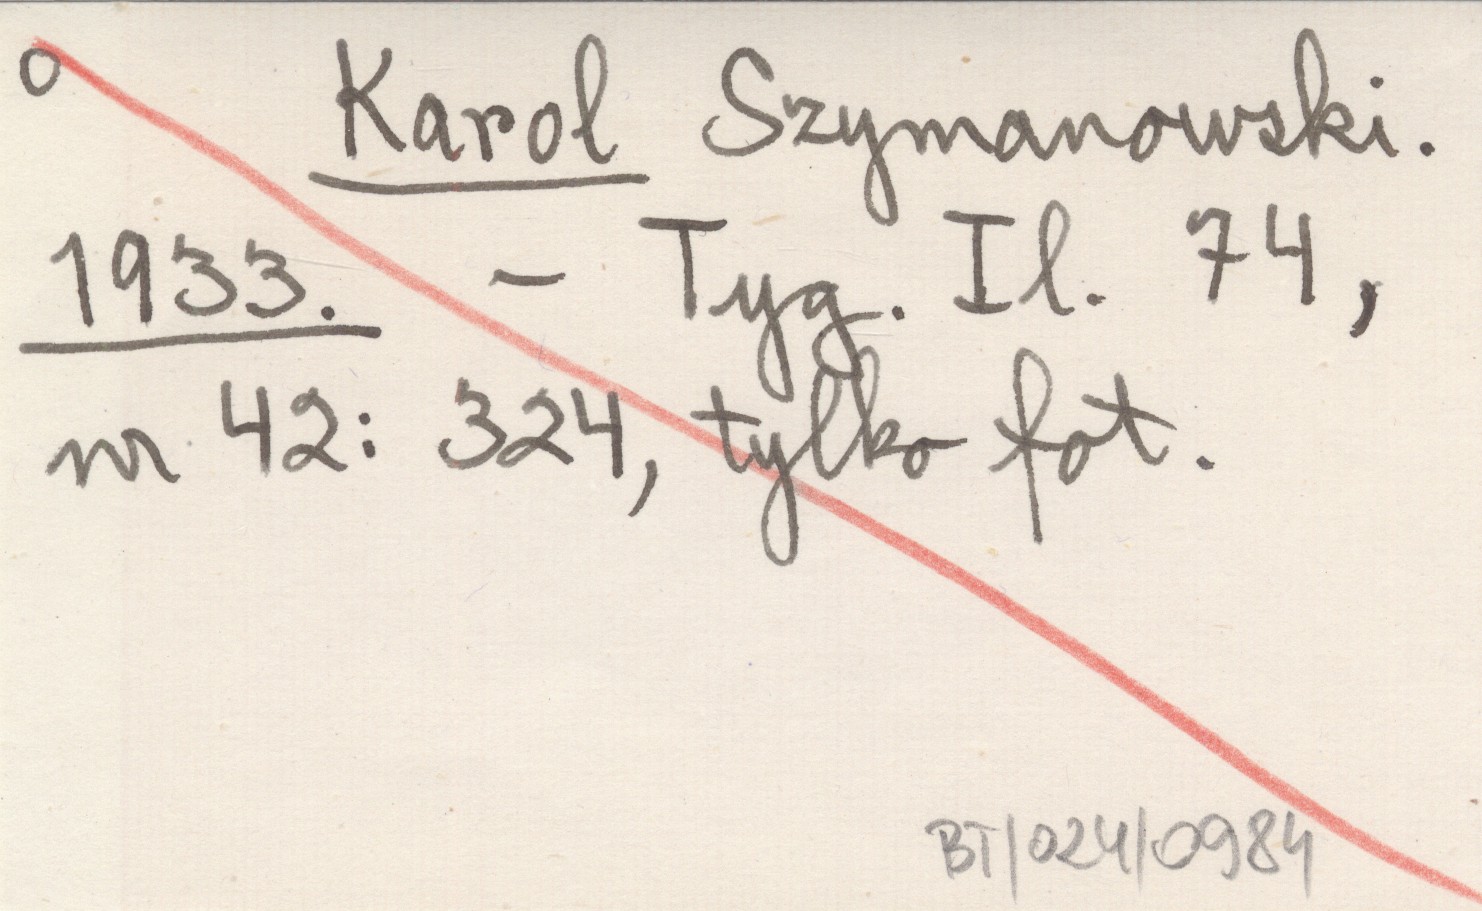 o Karol Szymanowski.
1933. – Tyg. Il. 74,
nr 42: 324, tylko fot.
BT/024/0984